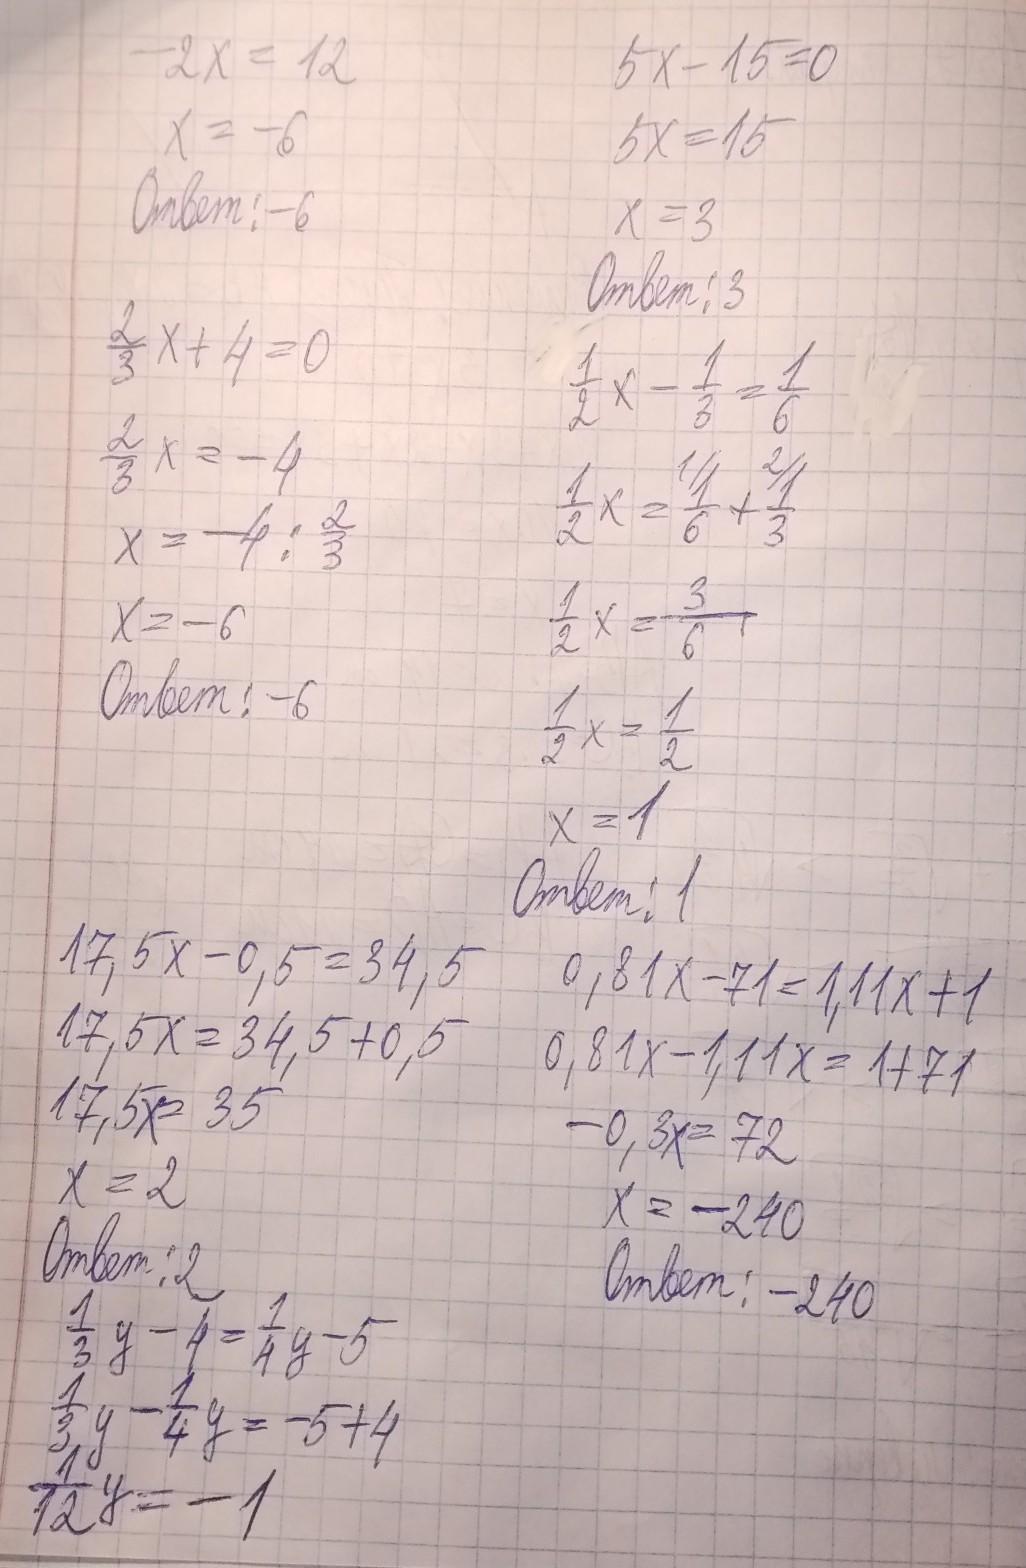 -2x = 12
x = -6
Ответ: -6
5x - 15 = 0
5x = 15
x = 3
Ответ: 3
2/3 x + 4 = 0
2/3 x = -4
x = -4 : 2/3
x = -6
Ответ: -6
1/2 x - 1/3 = 1/6
1/2 x = 1/ 1/6 + 2/ 1/3
1/2 x = 3/6
1/2 x = 1/2
x = 1
Ответ: 1
17,5x - 0,5 = 34,5
17,5x = 34,5 + 0,5
17,5x = 35
x = 2
Ответ: 2
0,81x - 71 = 1,11x + 1
0,81x - 1,11x = 1 + 71
-0,3x = 72
x = -240
Ответ: -240
1/3 y - 4 = 1/4 y - 5
1/3 y - 1/4 y = -5 + 4
1/12 y = -1